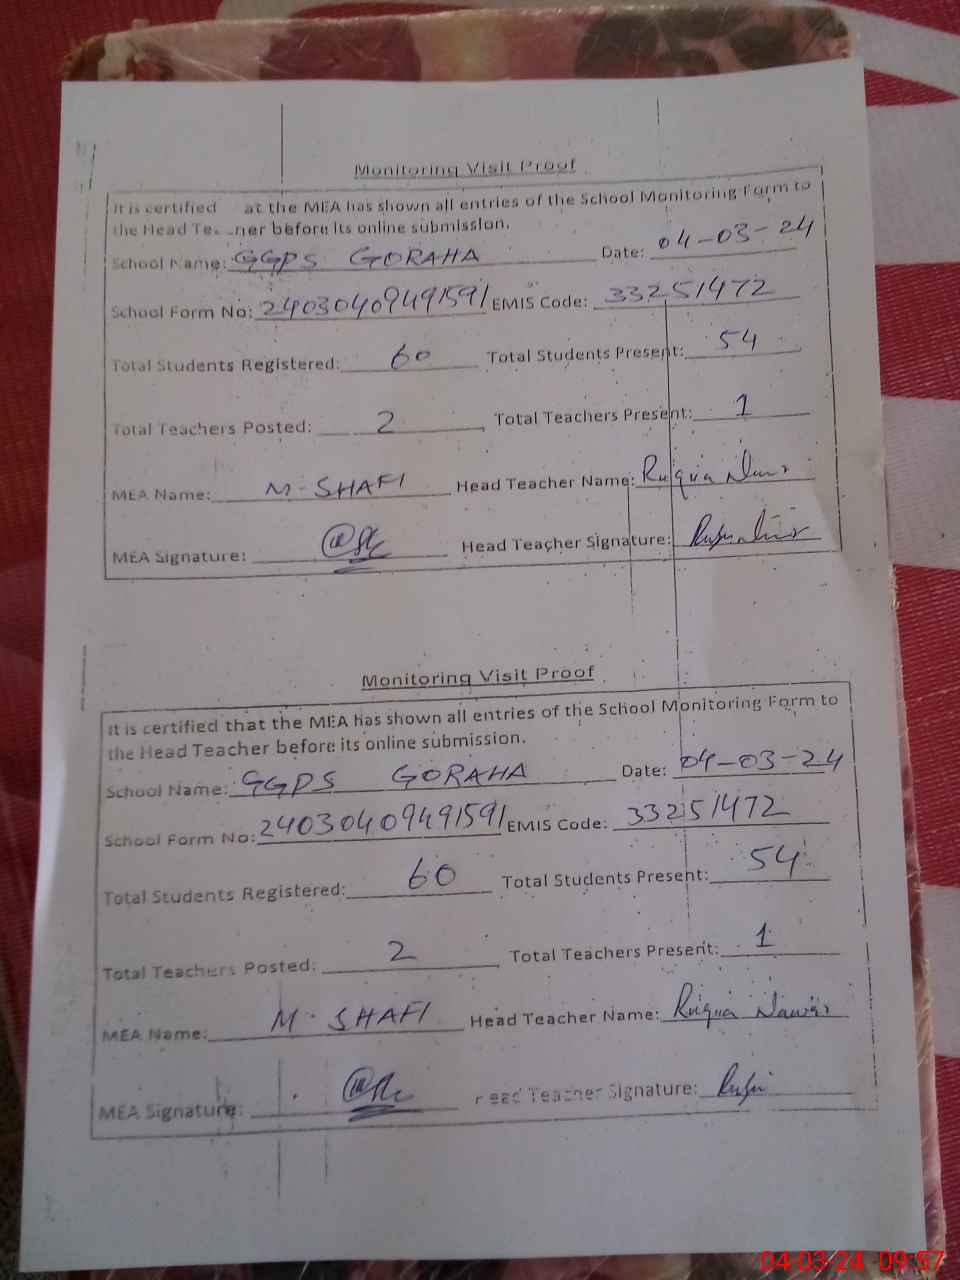 Monitoring Visit Proof
It is certified at the MEA has shown all entries of the School Monitoring Form to
the Head Te ner before its online submission.
School Name: GGPS GORAHA Date: 04-03-24
School Form No: 24030409491591 EMIS Code: 33251472
Total Students Registered: 60 Total Students Present: 54
Total Teachers Posted: 2 Total Teachers Present: 1
MEA Name: M-SHAFI Head Teacher Name: Ruquia Nawaz
MEA Signature: Head Teacher Signature:
Monitoring Visit Proof
It is certified that the MEA has shown all entries of the School Monitoring Form to
the Head Teacher before its online submission.
School Name: GGPS GORAHA Date: 04-03-24
School Form No: 24030409491591 EMIS Code: 33251472
Total Students Registered: 60 Total Students Present: 54
Total Teachers Posted: 2 Total Teachers Present: 1
MEA Name: M. SHAFI Head Teacher Name: Ruquia Nawaz
MEA Signature: Head Teacher Signature:
04-03-24 09:57